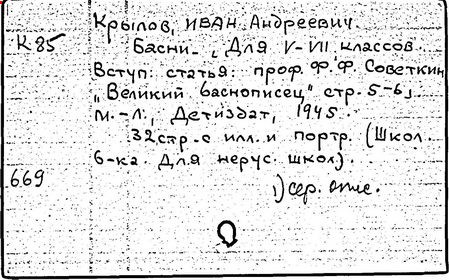 Крылов, Иван Андреевич.
К 85
Басни. , Для V-VII классов.
Вступ. статья: проф. Ф.Ф. Советкин
„Великий баснописец" стр. 5-6,
М.-Л., Детиздат, 1945.
32 стр. с илл. и портр. (Школ.
б-ка. Для нерус. школ).
669
1) сер.